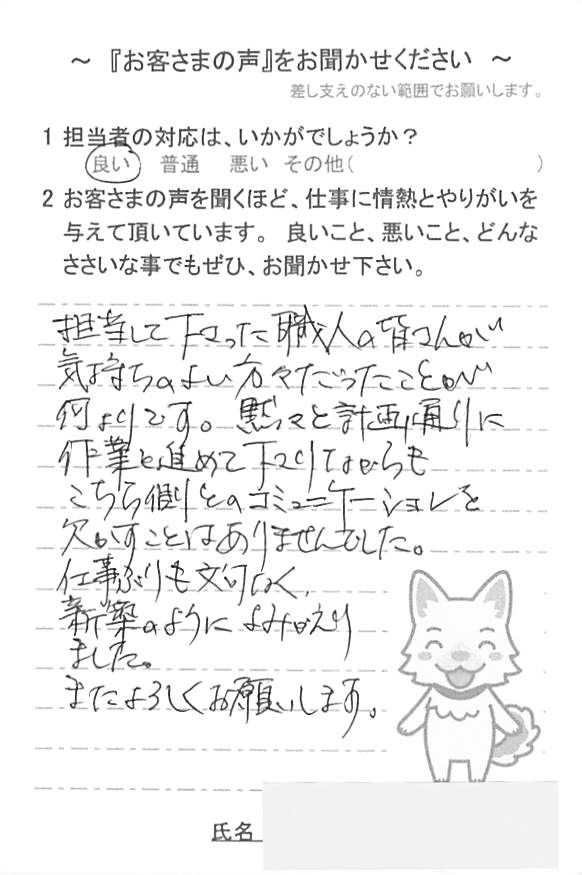 ~ 『お客さまの声』をお聞かせください ~
差し支えのない範囲でお願いします。
1 担当者の対応は、いかがでしょうか？
良い 普通 悪い その他( )
2 お客さまの声を聞くほど、仕事に情熱とやりがいを
与えて頂いています。 良いこと、悪いこと、どんな
ささいな事でもぜひ、お聞かせ下さい。
担当して下さった職人の皆さんが
気持ちのよい方々だったことが
何よりです。黙々と計画通りに
作業を進めて下さりながらも
こちら側とのコミュニケーションを
欠かすことはありませんでした。
仕事ぶりも文句なく、
新築のようによみがえり
ました。
またよろしくお願いします。
氏名